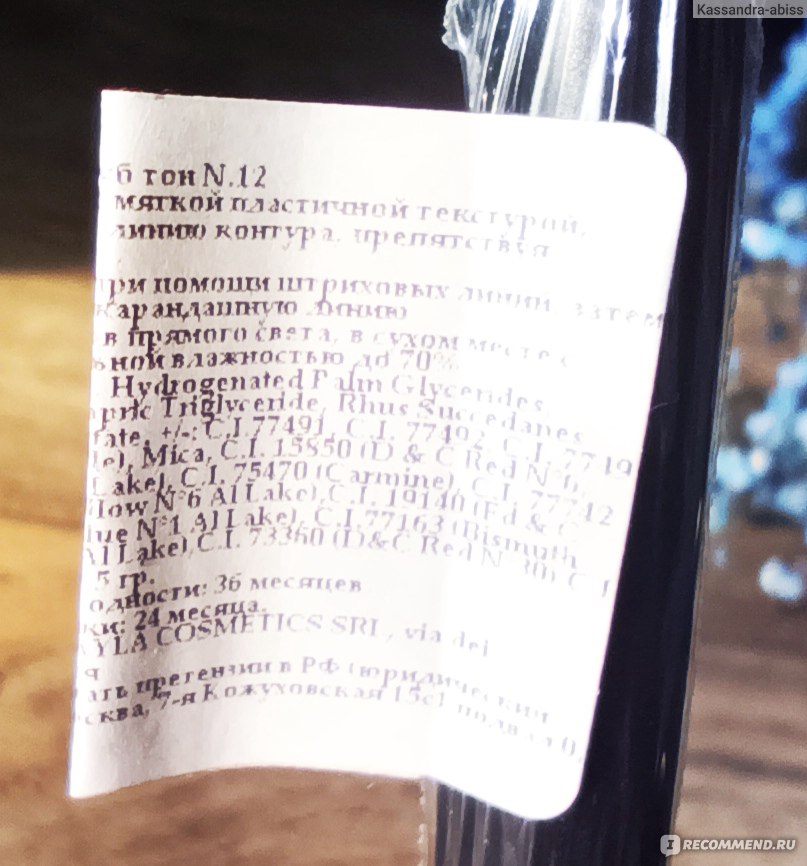 Kassandra-abiss
б тон N.12
мягкой пластичной текстурой,
линию контура, препятствуя
при помощи штриховых линий, затем
карандашную линию
в прямого света, в сухом месте с
ьной влажностью до 70%
Hydrogenated Palm Glycerides,
pric Triglyceride, Rhus Succedanea
rate, +/-: C.I.77491, C.I. 77492, C.I. 7749
le), Mica, C.I. 15850 (D & C Red N°6,
Lake), C.I. 75470 (Carmine), C.I. 77742
llow N°6 Al Lake), C.I. 19140 (Fd & C
lue N°1 Al Lake), C.I.77163 (Bismuth
Al Lake), C.I. 73360 (D&C Red N°30), C.I
5 гр.
одности: 36 месяцев
ки: 24 месяца.
YLA COSMETICS SRL, via dei
я
ать претензии в РФ (юридический
сква, 7-я Кожуховская 15с1
I RECOMMEND.RU